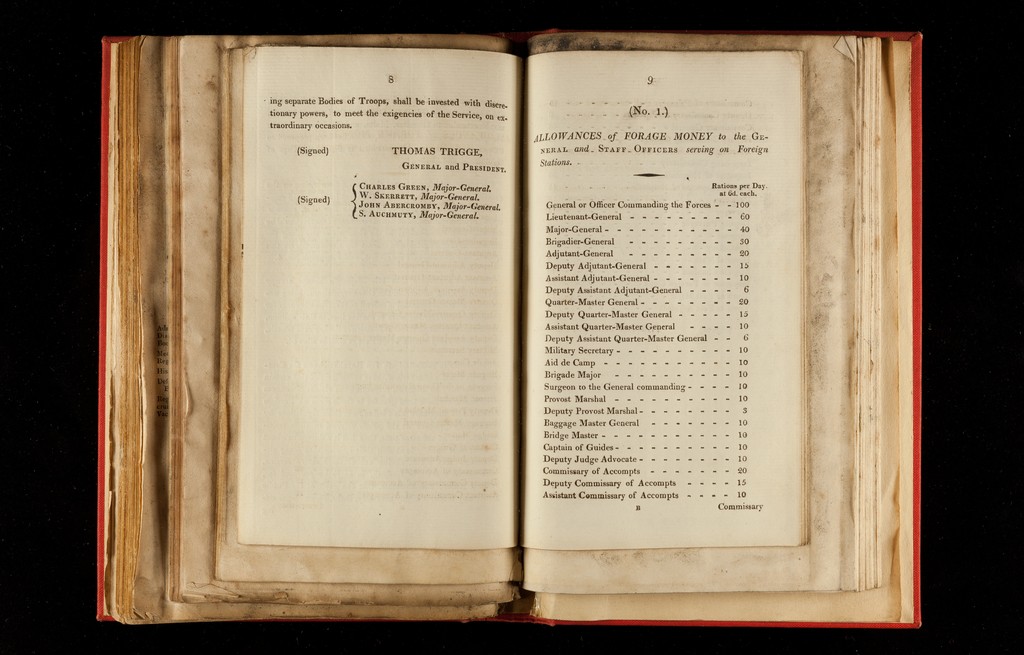 8
ing separate Bodies of Troops, shall be invested with discre-
tionary powers, to meet the exigencies of the Service, on ex-
traordinary occasions.
(Signed) THOMAS TRIGGE,
GENERAL and PRESIDENT.
(Signed)
CHARLES GREEN, Major-General.
W. SKERRETT, Major-General.
JOHN ABERCROMBY, Major-General.
S. AUCHMUTY, Major-General.
9
(No. 1.)
ALLOWANCES of FORAGE MONEY to the GE-
NERAL and STAFF OFFICERS serving on Foreign
Stations.
Rations per Day.
at 6d. each.
General or Officer Commanding the Forces - - 100
Lieutenant-General - - - - - - - - - 60
Major-General - - - - - - - - - - - 40
Brigadier-General - - - - - - - - - 30
Adjutant-General - - - - - - - - - 20
Deputy Adjutant-General - - - - - - - 15
Assistant Adjutant-General - - - - - - - 10
Deputy Assistant Adjutant-General - - - - 6
Quarter-Master General - - - - - - - - 20
Deputy Quarter-Master General - - - - - 15
Assistant Quarter-Master General - - - - 10
Deputy Assistant Quarter-Master General - - 6
Military Secretary - - - - - - - - - - 10
Aid de Camp - - - - - - - - - - - 10
Brigade Major - - - - - - - - - - 10
Surgeon to the General commanding - - - - 10
Provost Marshal - - - - - - - - - - 10
Deputy Provost Marshal - - - - - - - - 3
Baggage Master General - - - - - - - 10
Bridge Master - - - - - - - - - - - 10
Captain of Guides - - - - - - - - - - 10
Deputy Judge Advocate - - - - - - - - 10
Commissary of Accompts - - - - - - - 20
Deputy Commissary of Accompts - - - - 15
Assistant Commissary of Accompts - - - - 10
B Commissary